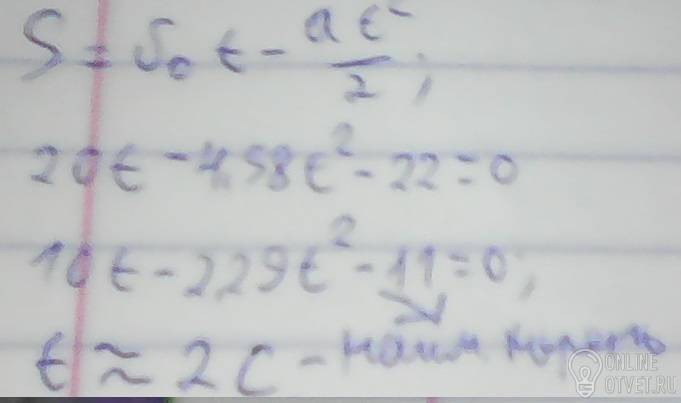 S = S₀ t - at²/2 ;
20t - 4,58t² - 22 = 0
10t - 229t² - 11 = 0;
t ≈ 2 с - наим корень
ONLINE
OTVET.RU